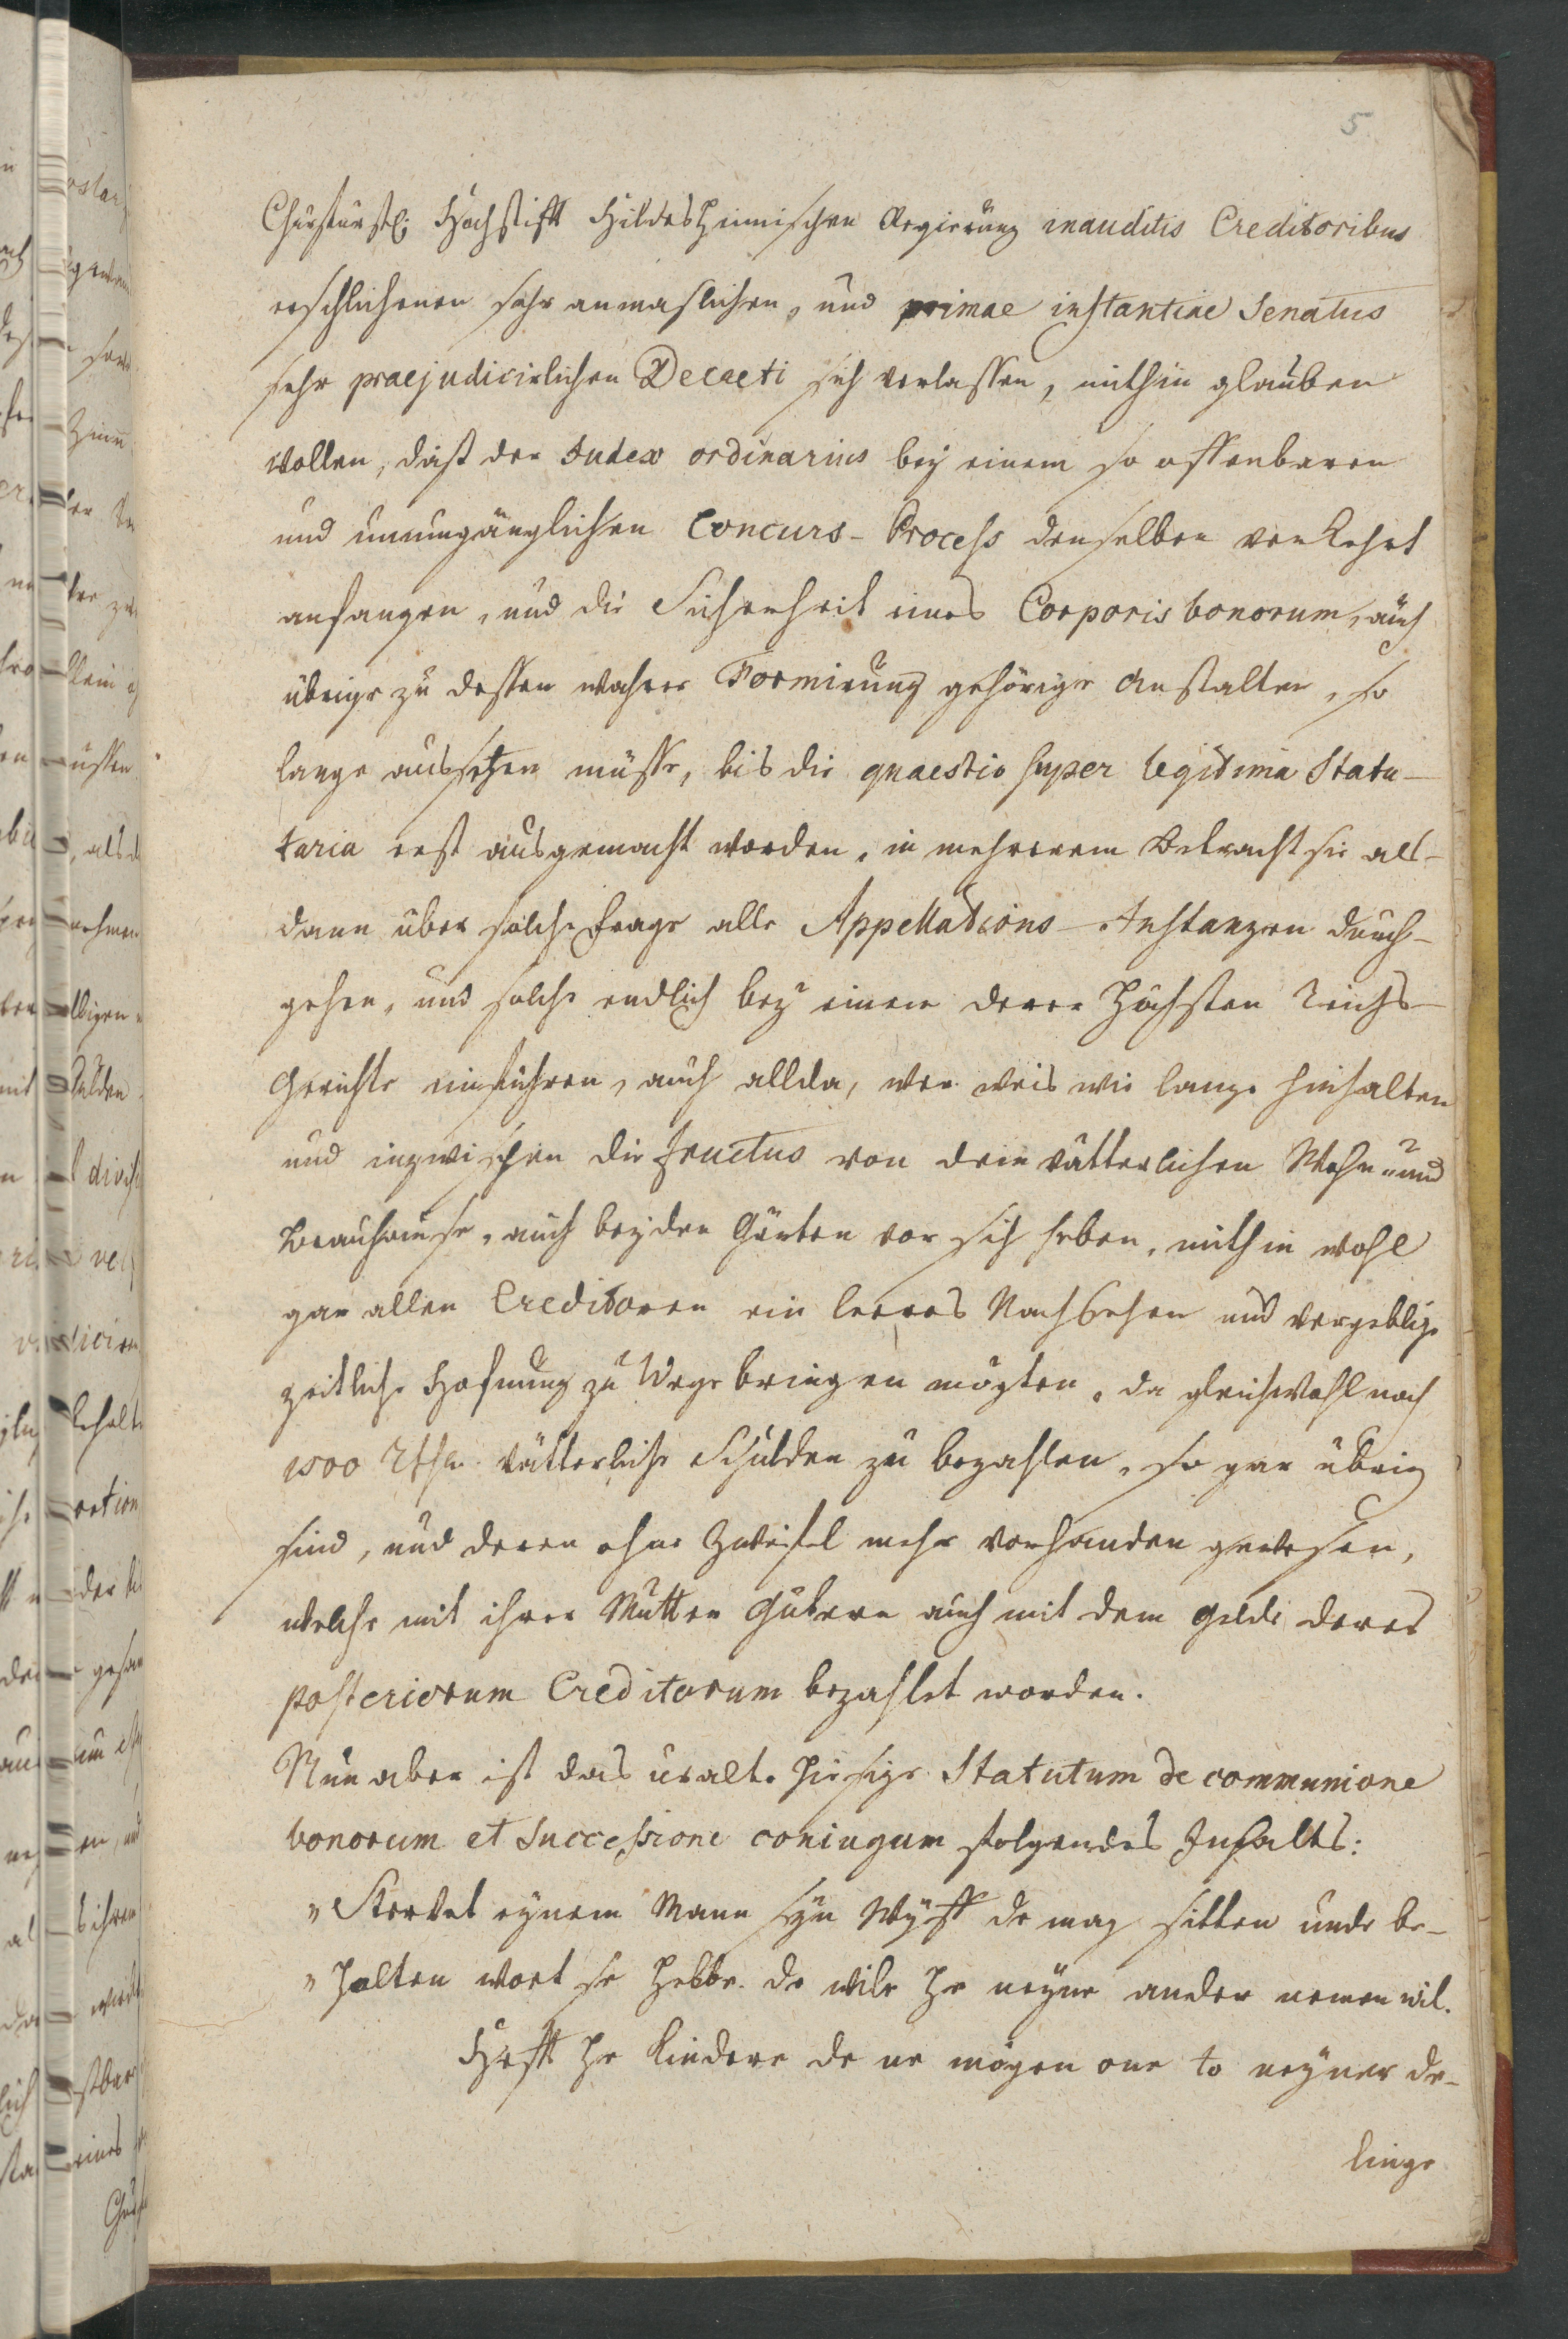 5
Churfürstl: Hochstifft Hildesheimischen Regierung inauditis Creditoribus
erschlichenen sehr anmaslichen, und primae instantiae Senatus
sehr praejudicirlichen Decreti sich verlassen, mithin glauben
wollen, daß der Iudex ordinarius bey einem so offenbaren
und unumgänglichen Concurs-Process denselben verkehrt
anfangen, und die Sicherheit eines Corporis bonorum, auch
übrige zu dessen wahrer Formirung gehörige Anstalten, so
lange aussetzen müsse, bis die quaestio super legitima Statu-
taria erst ausgemacht worden, in mehrerem Betracht sie als-
dann über solche Frage alle Appellations-Instanzen durch-
gehen, und solche endlich bey einem derer höchsten Reichs-
Gerichte einführen, auch allda, wer weis wie lange hinhalten
und inzwischen die fructus von dem vätterlichen Wohn- und
Brauhause, auch beyden Gärten vor sich heben, mithin wohl
gar allen Creditoren ein leeres Nachsehen und vergebliche
zeitliche Hofnung zu Wege bringen mögten, da gleichwohl noch
1500 Rthlr. vätterliche Schulden zu bezahlen, so gar übrig
sind, und deren ohne Zweifel mehr vorhanden gewesen,
welche mit ihrer Mutter Gütern auch mit dem Gelde derer
posteriorum Creditorum bezahlet worden.
Nun aber ist das uralte hiesige Statutum de communione
bonorum et successione coniugum folgendes Inhalts:
„ Stervet eynem Mann syn Wyff de mag sitten unde be-
„ halten wort se hebbe. de wile he neyne ander nemen wil.
Hefft he kindere de ne mögen one to neyner de-
linge